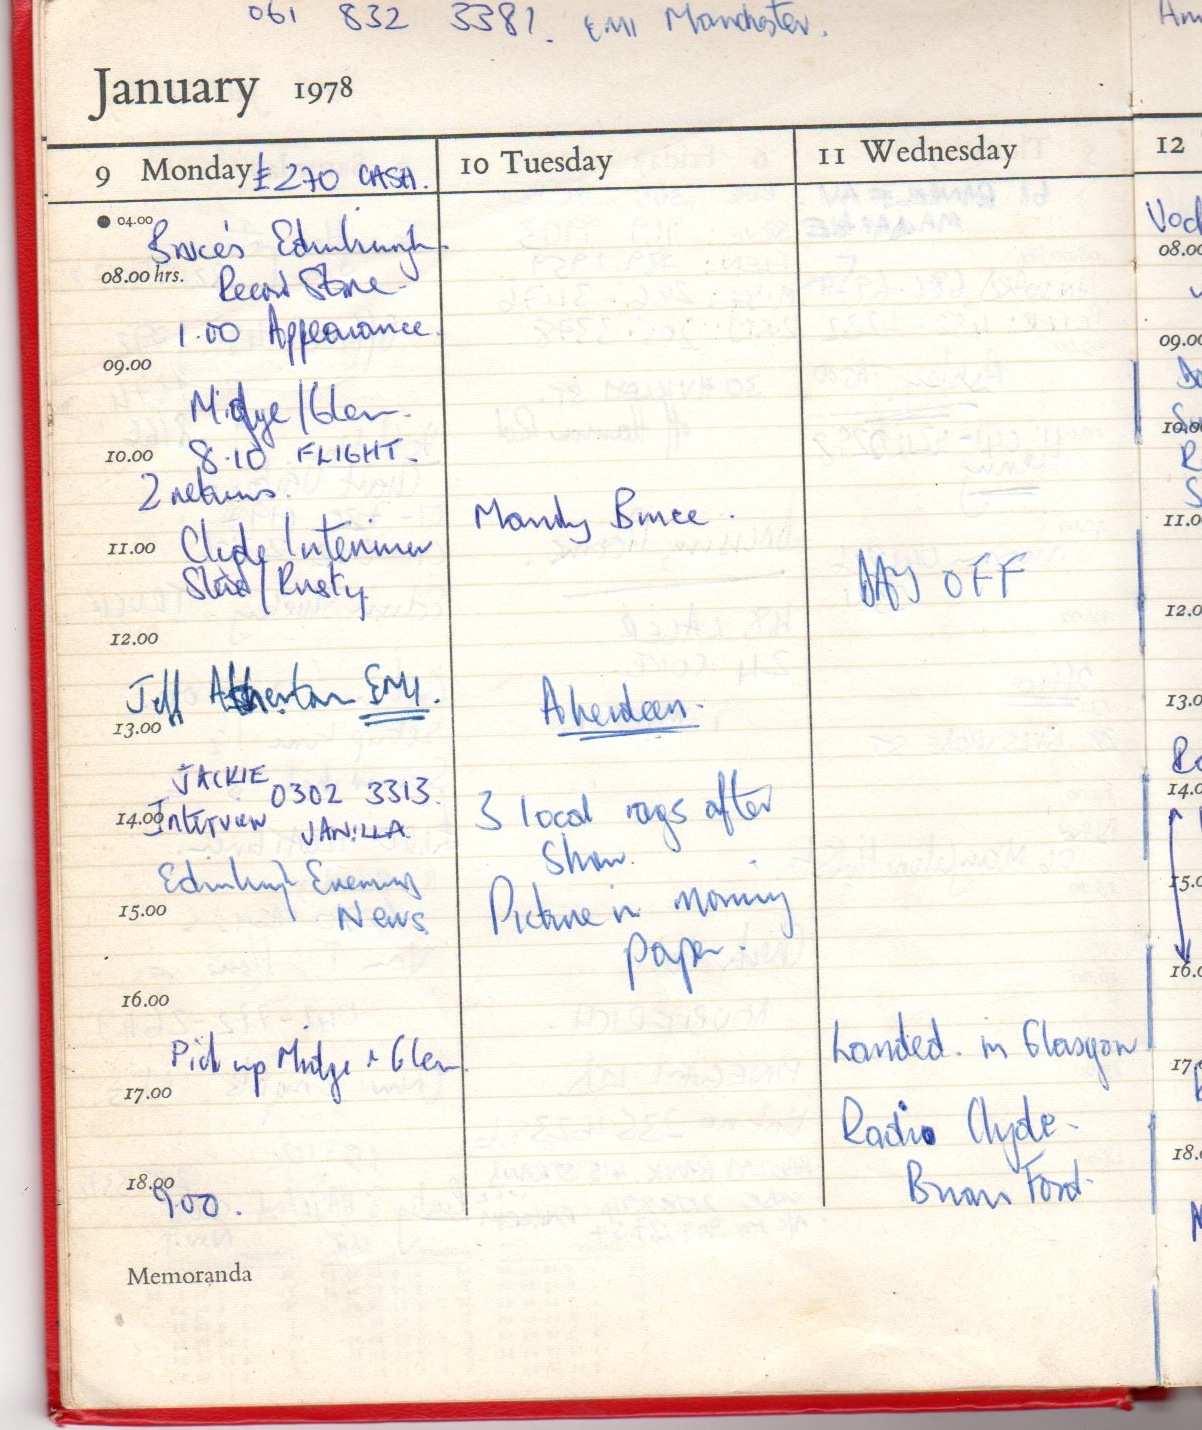 061 832 3381. EMI Manchester.
January 1978
9 Monday £270 CASH.
04.00
Bruce's Edinburgh
08.00 hrs.
Record Store.
1.00 Appearance.
09.00
Midge/Glen.
10.00
8.10 FLIGHT.
2 returns.
11.00
Clyde Interview
Slad/Rusty
12.00
Jeff Atherton EMI.
13.00
JACKIE 0302 3313.
14.00
INTERVIEW
Edinburgh Evening
15.00
News
16.00
Pick up Midge & Glen
17.00
18.00
900.
Memoranda
10 Tuesday
Mandy Bruce.
Aberdeen.
3 local rags after
Show.
Picture in morning
paper.
11 Wednesday
DAY OFF
Landed. in Glasgow
Radio Clyde.
Brian Ford.
12
08.00
09.00
10.00
11.00
12.0
13.0
14.0
15.0
16.0
17.
18.